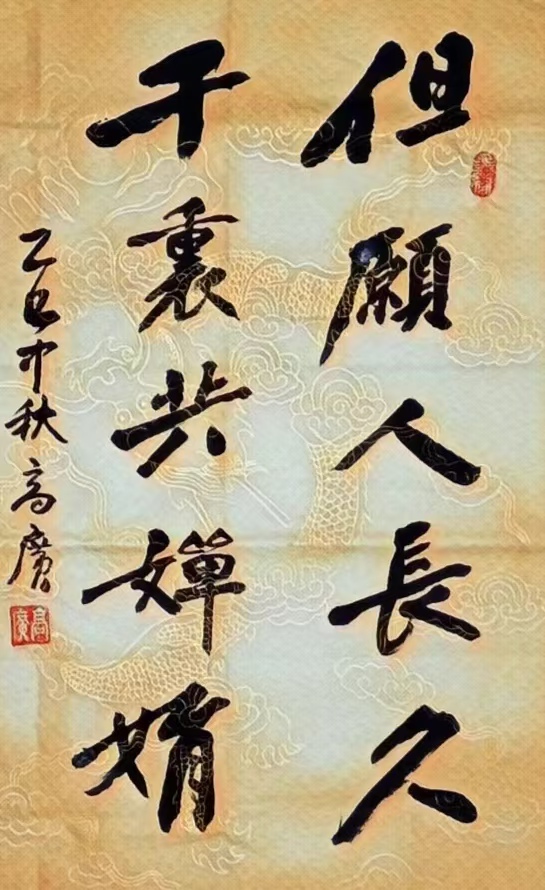 但願人長久
千裏共嬋娟
乙巳中秋 高廣
高廣